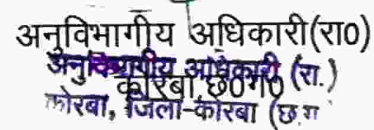 अनुविभागीय अधिकारी(रा०)
अनुविभागीय अधिकारी (रा.)
कोरबा,छ०ग०
कोरबा, जिला-कोरबा (छ.ग